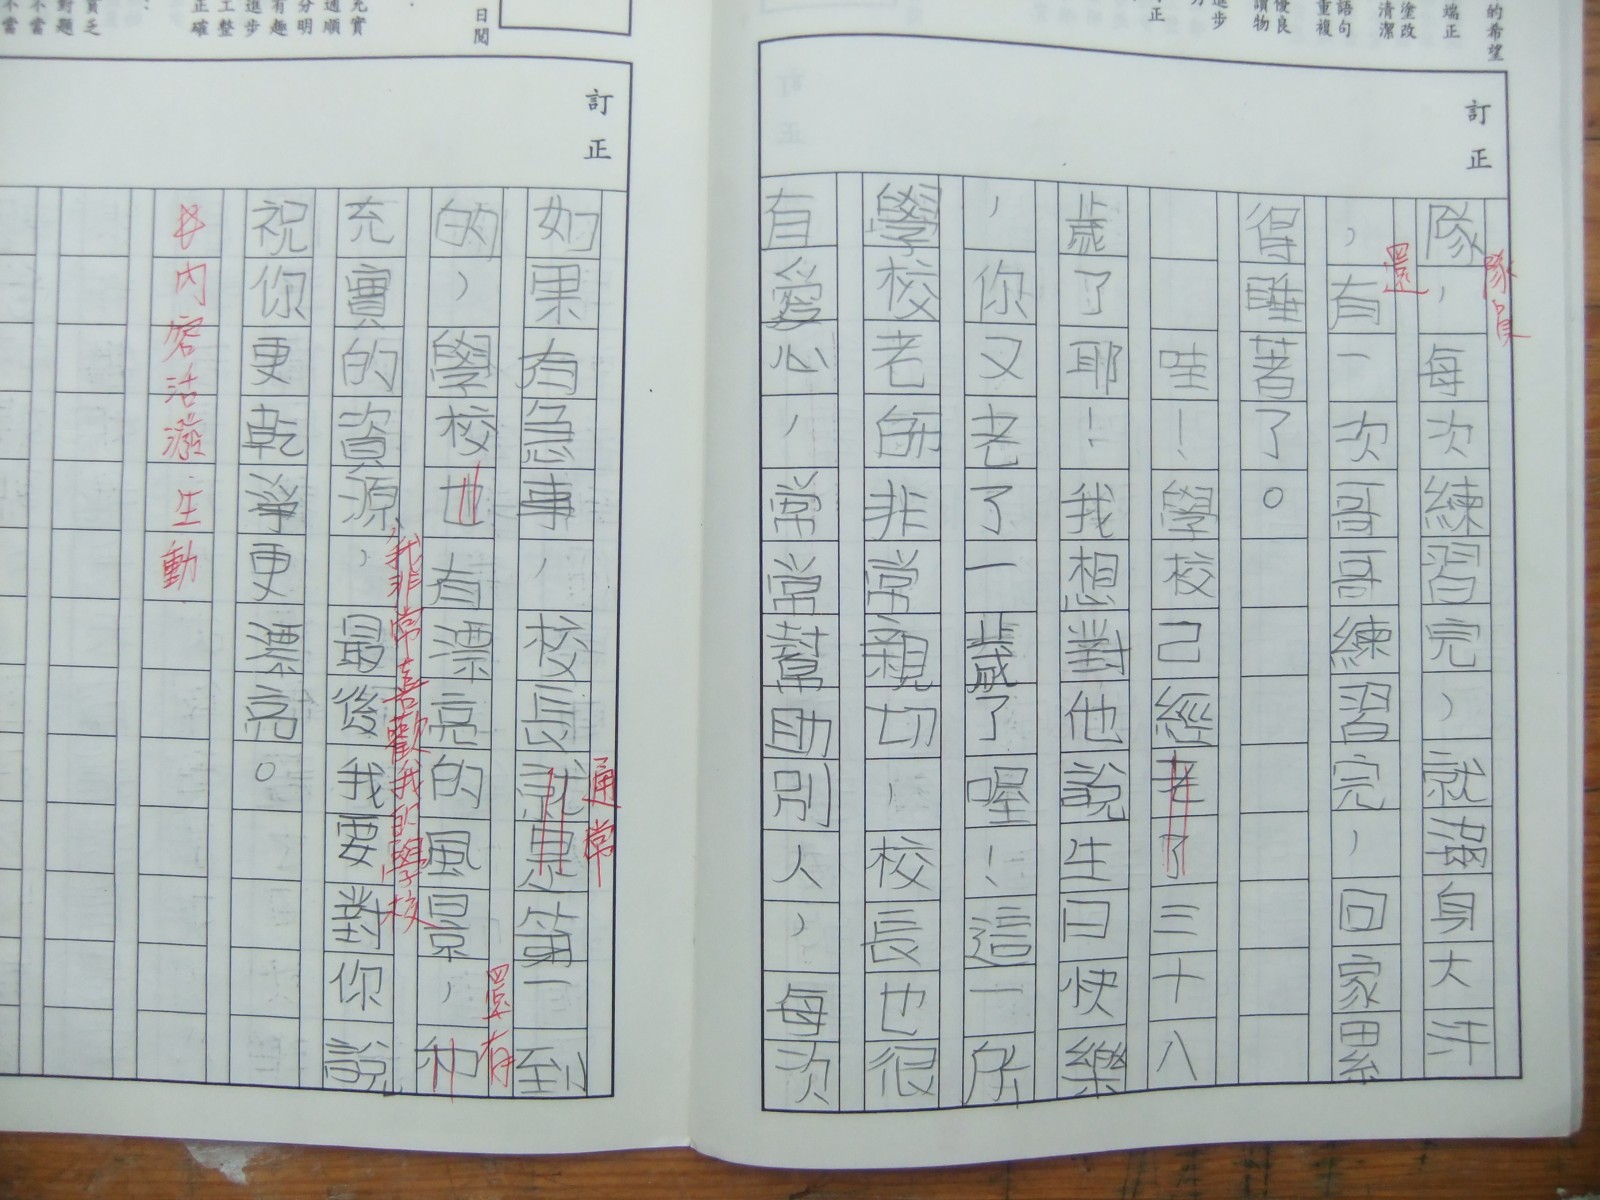 的希望
端正
塗改
清潔
語句
重複
優良
讀物
進步
正
訂正
隊員
隊，每次練習完，就滿身大汗
還
，有一次哥哥練習完，回家累
得睡著了。
哇！學校己經老了三十八
歲了耶！我想對他說生日快樂
，你又老了一歲了喔！這一所
學校老師非常親切，校長也很
有愛心，常常幫助別人，每次
日閱
充實
通順
分明
有趣
進步
工整
正確
貧乏
對題
不當
不當
訂正
通常
如果有急事，校長就是第一到
還有
的，學校也有漂亮的風景，和
我非常喜歡我的學校
充實的資源，最後我要對你說
祝你更乾淨更漂亮。
內容活潑生動